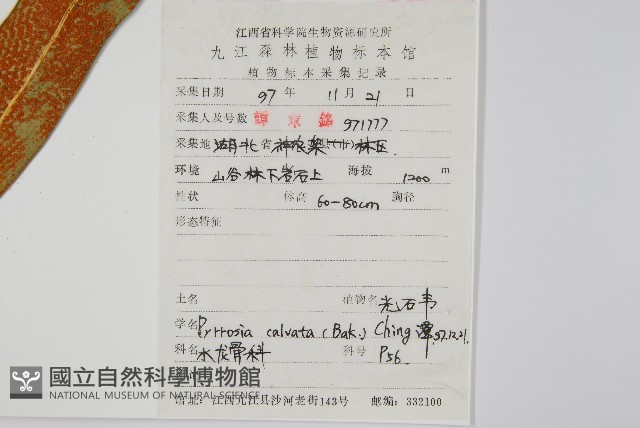 江西省科学院生物资源研究所
九江森林植物标本馆
植物标本采集记录
采集日期 97 年 11 月 21 日
采集人及号数 譚策銘 971777
采集地 湖北省 神农架 县(市) 林区
环境 山谷林下岩石上 海拔 1200 m
性状 体高 60-80cm 胸径
形态特征
土名 植物名 光石韦
学名 Pyrrosia calvata (Bak.) Ching 谭 97.12.21.
科名 水龙骨科 科号 P56
國立自然科學博物館
NATIONAL MUSEUM OF NATURAL SCIENCE
地址:江西九江县沙河老街143号 邮编:332100